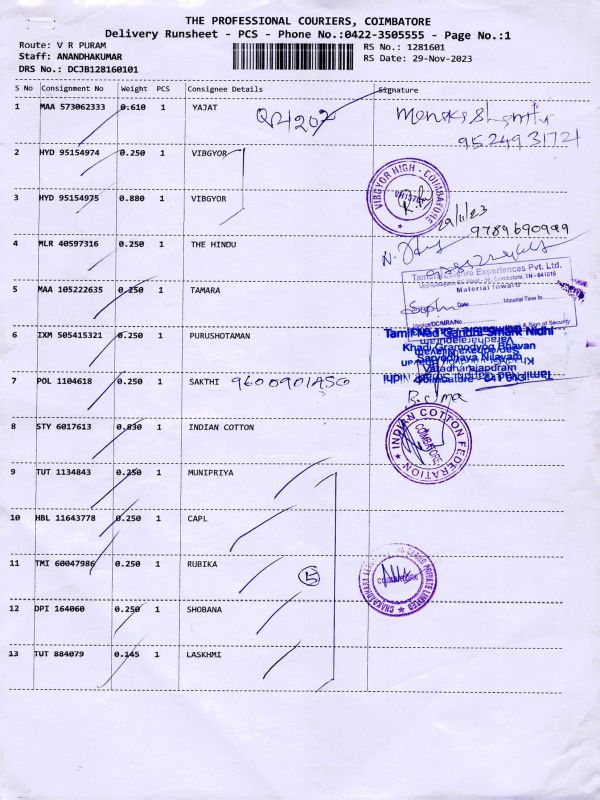 THE PROFESSIONAL COURIERS, COIMBATORE
Delivery Runsheet - PCS - Phone No.:0422-3505555 - Page No.:1
Route: V R PURAM
RS No.: 1281601
Staff: ANANDHAKUMAR
RS Date: 29-Nov-2023
DRS No.: DCJB128160101
S No Consignment No Weight PCS Consignee Details Signature
1 MAA 573062333 0.610 1 YAJAT
9524931721
2 HYD 95154974 0.250 1 VIBGYOR
VIBGYOR HIGH - COIMBATORE
3 HYD 95154975 0.880 1 VIBGYOR
29/11/23
9789690999
4 MLR 40597316 0.250 1 THE HINDU
Experiences Pvt. Ltd.
Coimbatore, TN - 641015
Material Inward
5 MAA 105222635 0.250 1 TAMARA
Date Material Time In
Invoice/DC/MRA/No & Sign of Security
6 IXM 505415321 0.250 1 PURUSHOTAMAN
Khadi Gramodyog Bhavan
Sarvodhaya Nilayam
Varadharajapuram
7 POL 1104618 0.250 1 SAKTHI
8 STY 6017613 0.830 1 INDIAN COTTON
INDIAN COTTON FEDERATION
COIMBATORE
9 TUT 1134843 0.250 1 MUNIPRIYA
10 HBL 11643778 0.250 1 CAPL
11 TMI 60047986 0.250 1 RUBIKA
5
COIMBATORE
PRIVATE LIMITED
12 DPI 164060 0.250 1 SHOBANA
13 TUT 884079 0.145 1 LASKHMI